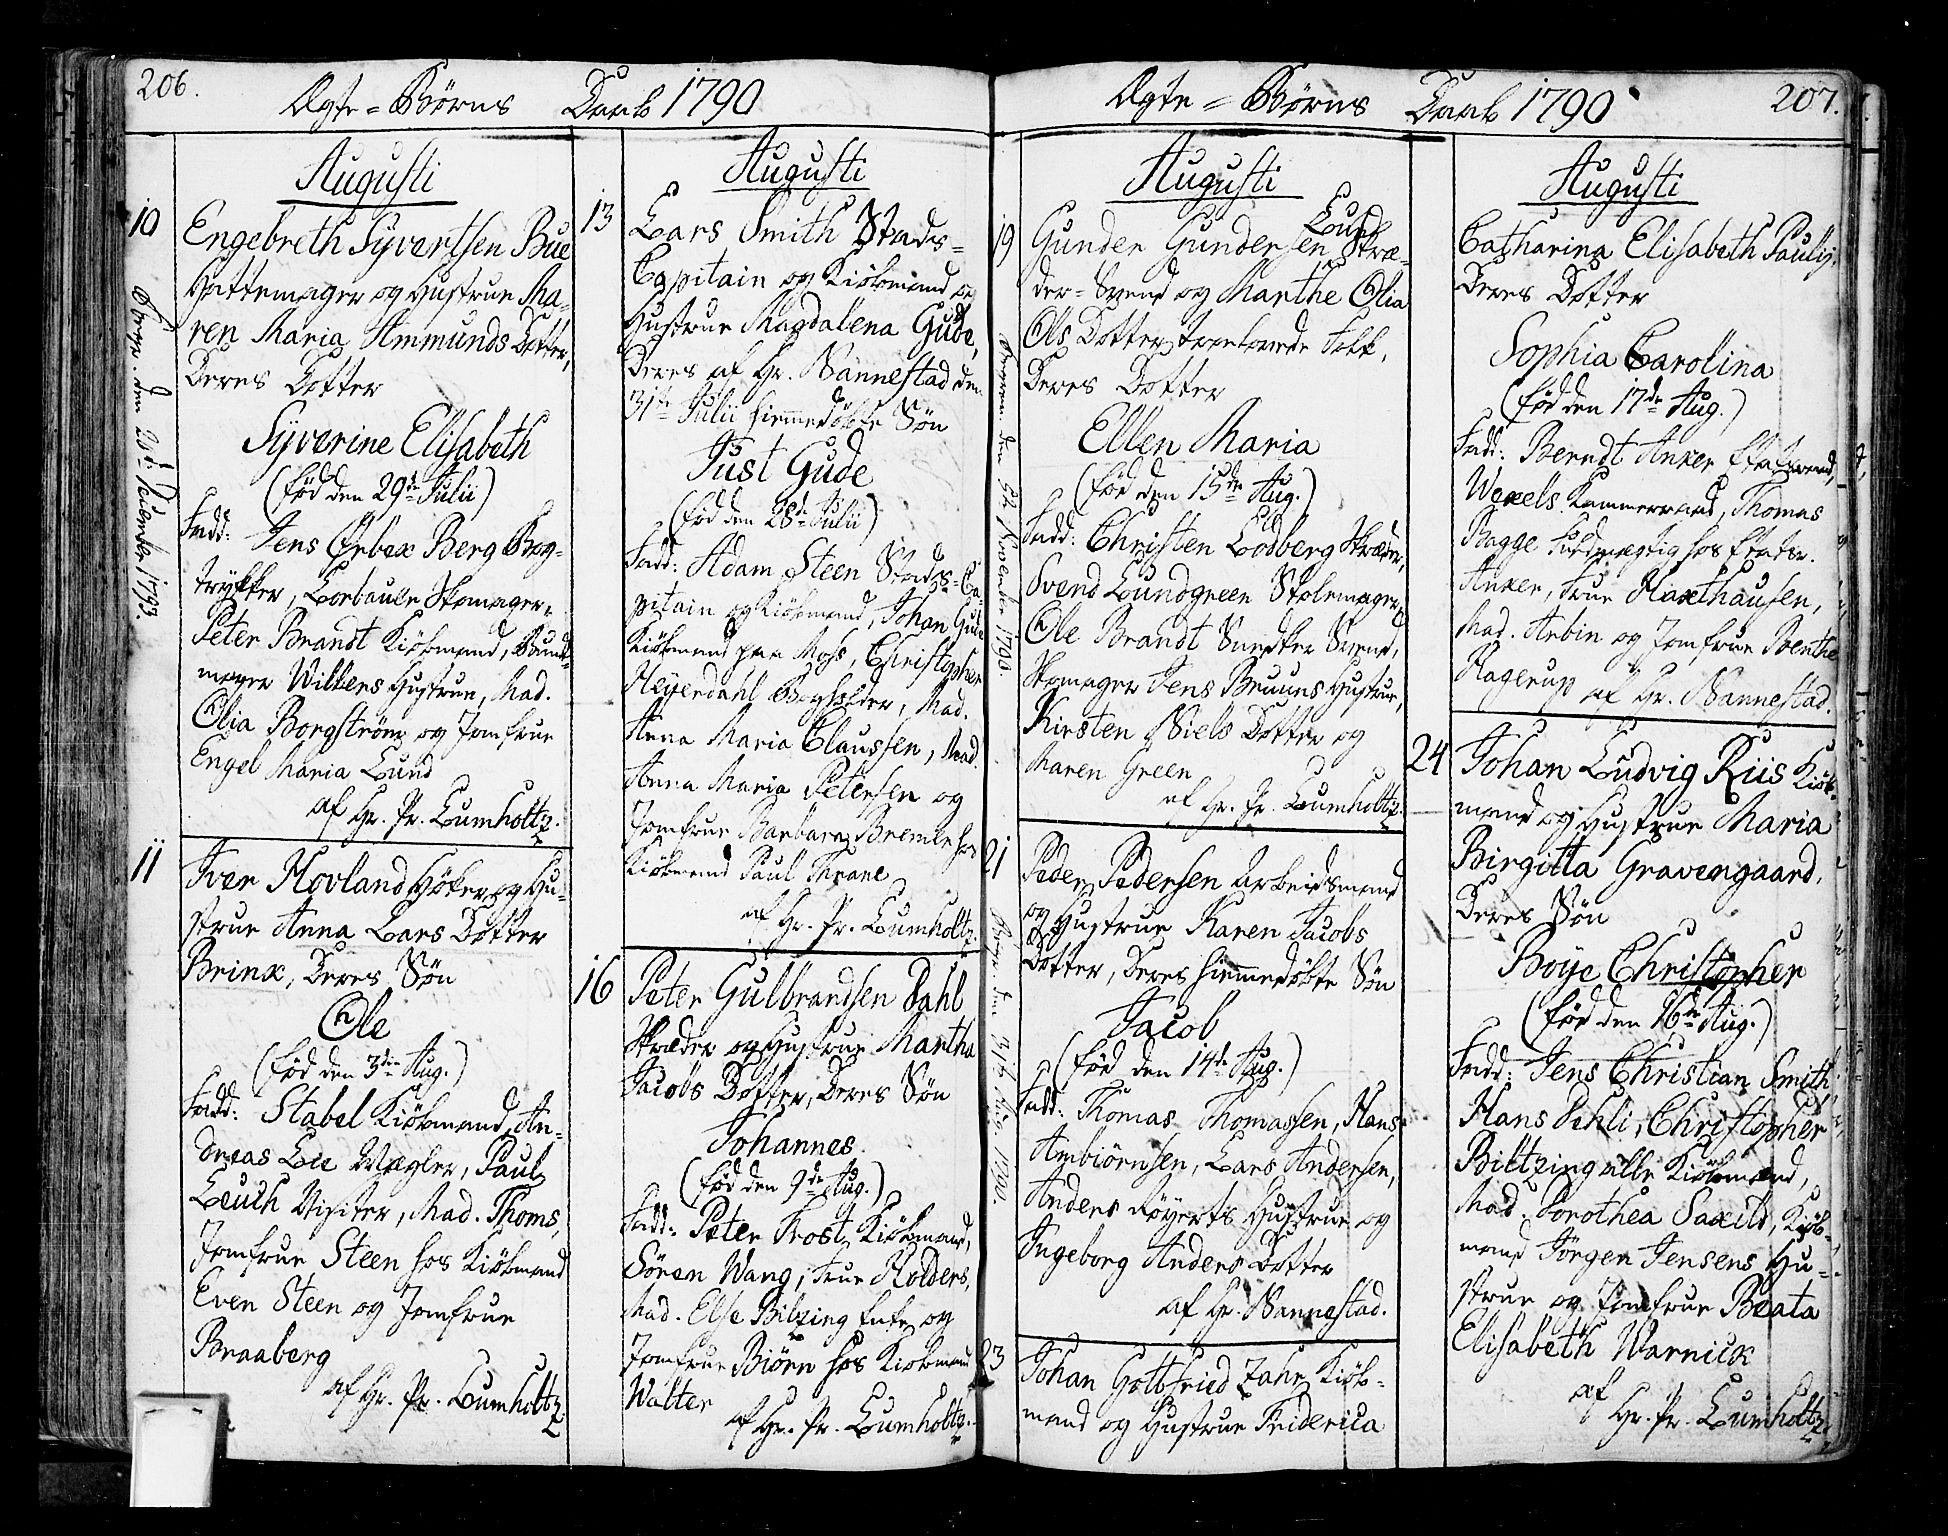 206.
Ægte=Børns Daab 1790
Augusti
10
Engebreth Syvertsen Bue
Hattemager og Hustrue Ma-
ren Maria Ammunds Dotter,
Deres Dotter
Syverine Elisabeth
(fød den 29de Julii)
Fadd: Jens Ørbex Berg Bog-
trykker, Skomager,
Peter Brandt Kiøbmand,
mager Wilkens Hustrue, Mad.
Olia Borgstrøm og Jomfrue
Engel Maria Lund
af Hr. Pr. Lumholtz.
11
Iver Hovland Høker og Hu-
strue Anna Lars Dotter
Brinx, Deres Søn
Ole
(fød den 3die Aug.)
Fadd: Stabel Kiøbmand, An-
dreas Lie Mægler, Paul
Leuch Visiter, Mad. Thoms,
Jomfrue Steen hos Kiøbmand
Even Steen og Jomfrue
Braaberg
af Hr. Pr. Lumholtz
Augusti
13
Lars Smith Stads-
Capitain og Kiøbmand og
Hustrue Magdalena Gude,
Deres af Hr. Nannestad den
31te Julii hiemmedøbte Søn
Just Gude
(fød den 28de Julii)
Fadd: Adam Steen Stads-Ca-
pitain og Kiøbmand, Johan Gude
Kiøbmand paa Moss, Christopher
Heyerdahl Bogholder, Mad.
Anna Maria Claussen, Mad.
Anna Maria Petersen og
Jomfrue Barbara Bremle hos
Kiøbmand Paul Thrane
af Hr. Pr. Lumholtz.
16
Peter Gulbrandsen Dahl
Skræder og Hustrue Martha
Jacobs Dotter, Deres Søn
Johannes.
(fød den 9de Aug.)
Fadd: Peter Frost Kiøbmand,
Søren Wang, Frue Holders,
Mad. Else Bilzing Enke og
Jomfrue Biørn hos Kiøbmand
Walter
af Hr. Pr. Lumholtz.
Ægte=Børns Daab 1790
207.
Augusti
19
Lund
Gunder Gundersen Skræ-
der-Svend og Marthe Olia
Ols Dotter trolovede Folk,
Deres Dotter
Ellen Maria
(fød den 15de Aug.)
Fadd: Christen Lodberg Skræder,
Svend Lundgreen Stolemager,
Ole Brandt Snedker Svend,
Skomager Jens Bruuns Hustrue,
Kirsten Niels Dotter og
Maren Green
af Hr. Pr. Lumholtz.
21
Peder Pedersen Arbeidsmand
og Hustrue Karen Jacobs
Dotter, Deres hiemmedøbte Søn
Jacob
(fød den 14de Aug.)
Fadd: Thomas Thomassen, Hans
Ambiörnsen, Lars Andersen,
Anders Röyerts Hustrue og
Ingeborg Anders Dotter
af Hr. Nannestad.
23
Johan Gottfried Jahn Kiøb-
mand og Hustrue Friderica
Augusti
Catharina Elisabeth Paulij.
Deres Dotter
Sophia Carolina
(fød den 17de Aug.)
Fadd: Berndt Anker Etatsraad,
Wexels Kammerraad, Thomas
Bagge Fuldmægtig hos Etatsr.
Anker, Frue Haxthausen,
Mad. Arbin og Jomfrue Benthe
Hagerup
af Hr. Nannestad.
24
Johan Ludvig Riis Kiøb-
mand og Hustrue Maria
Birgitta Gravengaard,
Deres Søn
Boye Christopher
(fød den 16de Aug.)
Fadd: Jens Christian Smith,
Hans Pehli, Christopher
Biltzing alle Kiøbmænd,
Mad. Dorothea Saxild, Kiøb-
mand Jörgen Jensens Hu-
strue og Jomfrue Beata
Elisabeth Warnick
af
Hr. Pr. Lumholtz.